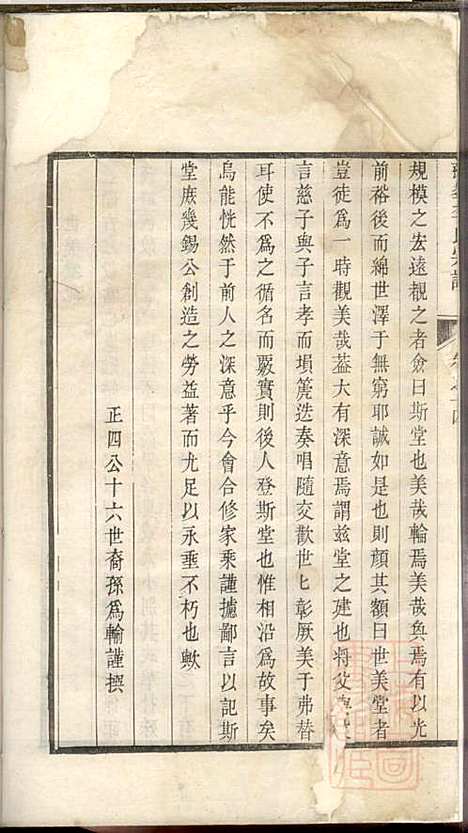 規模之宏遠觀之者僉曰斯堂也美哉輪焉美哉奐焉有以光
前裕後而綿世澤于無窮耶誠如是也則顏其額曰世美堂者
豈徒爲一時觀美哉葢大有深意焉謂兹堂之建也將父與
言慈子與子言孝而塤箎迭奏唱隨交歡世匕彰厥美于弗替
耳使不爲之循名而覈實則後人登斯堂也惟相沿爲故事矣
烏能恍然于前人之深意乎今會合修家乘謹據鄙言以記斯
堂庶幾錫公創造之勞益著而尤足以永垂不朽也歟
正四公十六世裔孫爲輸謹撰